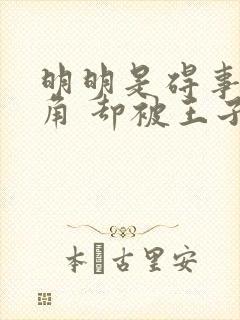 明明是碍事
角 却被王子
本 古里安